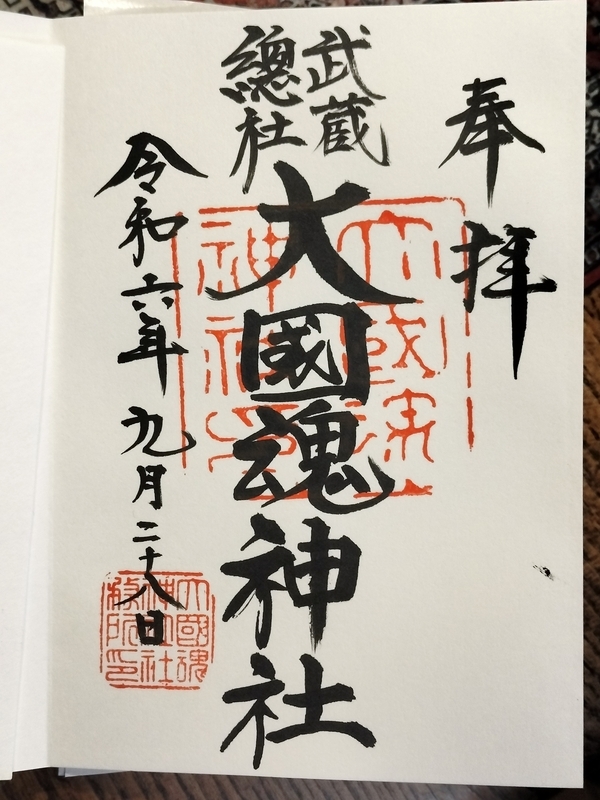 奉拝
武蔵
總社
大國魂神社
令和六年九月二十八日
大國魂
神社印
大國魂
神社社
務所印